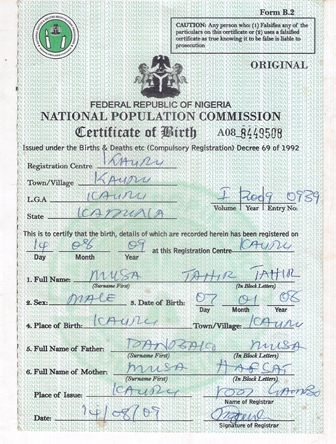 Form B.2
CAUTION: Any person who (1) Falsifies any of the
particulars on this certificate or (2) uses a falsified
certificate as true knowing it to be false is liable to
prosecution
ORIGINAL
FEDERAL REPUBLIC OF NIGERIA
NATIONAL POPULATION COMMISSION
Certificate of Birth A08 8449508
Issued under the Births & Deaths etc (Compulsory Registration) Decree 69 of 1992
Registration Centre KAURU
Town/Village KAURU
L.G.A KAURU I 2009 0989
State KADUNA Volume Year Entry No:
This is to certify that the birth, details of which are recorded herein has been registered on
14 08 09 at this Registration Centre KAURU
Day Month Year
1. Full Name: MUSA TAHIR TAHIR
(Surname First) (In Block Letters)
2. Sex: MALE 3. Date of Birth: 07 01 08
Day Month Year
4. Place of Birth: KAURU Town/Village: KAURU
5. Full Name of Father: MUSA
(Surname First) (In Block Letters)
6. Full Name of Mother: MUSA HAFSAT
(Surname First) (In Block Letters)
Place of Issue: KAURU GAMBO
Name of Registrar
Date: 14/08/09
Signature of Registrar